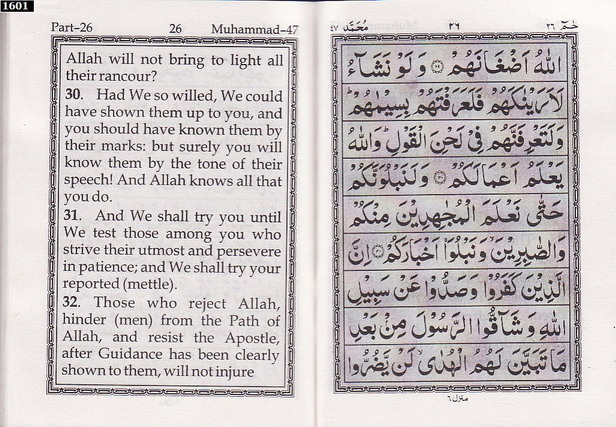 1601
Part–26 26 Muhammad–47
Allah will not bring to light all
their rancour?
30. Had We so willed, We could
have shown them up to you, and
you should have known them by
their marks: but surely you will
know them by the tone of their
speech! And Allah knows all that
you do.
31. And We shall try you until
We test those among you who
strive their utmost and persevere
in patience; and We shall try your
reported (mettle).
32. Those who reject Allah,
hinder (men) from the Path of
Allah, and resist the Apostle,
after Guidance has been clearly
shown to them, will not injure
حٰمٓ ٢٦ ٢٦ مُحَمَّد ٤٧
اللّٰهُ اَضْغَانَهُمْ ۝٢٩ وَلَوْ نَشَآءُ
لَاَرَيْنٰكَهُمْ فَلَعَرَفْتَهُمْ بِسِيْمٰىهُمْ ؕ
وَلَتَعْرِفَنَّهُمْ فِيْ لَحْنِ الْقَوْلِ ؕ وَاللّٰهُ
يَعْلَمُ اَعْمَالَكُمْ ۝٣٠ وَلَنَبْلُوَنَّكُمْ
حَتّٰى نَعْلَمَ الْمُجٰهِدِيْنَ مِنْكُمْ
وَالصّٰبِرِيْنَ ۙ وَنَبْلُوَا۟ اَخْبَارَكُمْ ۝٣١ اِنَّ
الَّذِيْنَ كَفَرُوْا وَصَدُّوْا عَنْ سَبِيْلِ
اللّٰهِ وَشَآقُّوا الرَّسُوْلَ مِنْۢ بَعْدِ
مَا تَبَيَّنَ لَهُمُ الْهُدٰى ۙ لَنْ يَّضُرُّوا
منزل ٦